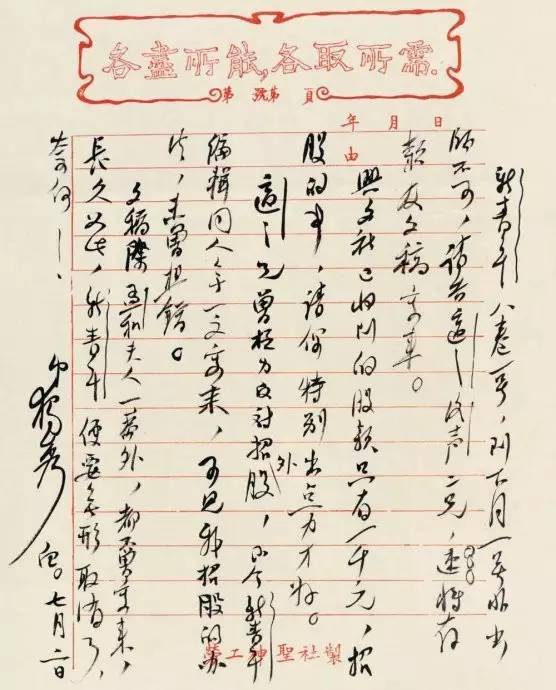 各盡所能,各取所需.
第 號第 頁
年 月 日
由
新青年八卷一号,到下月一号非出
版不可,請告適之洵声二兄,速將存
款及文稿寄來。
興文社已收到的股款只有一千元,招
股的事,請你特別出点力才好。
適之兄曾極力反对招外股,而今新青年
編輯同人無一文寄來,可見我招股的办
法,未曾想錯。
文稿除孟和夫人一篇外,都不曾寄來,
長久如此,新青年便要無形取消了,
奈何!
弟獨秀白。七月二日
勞工神聖社製